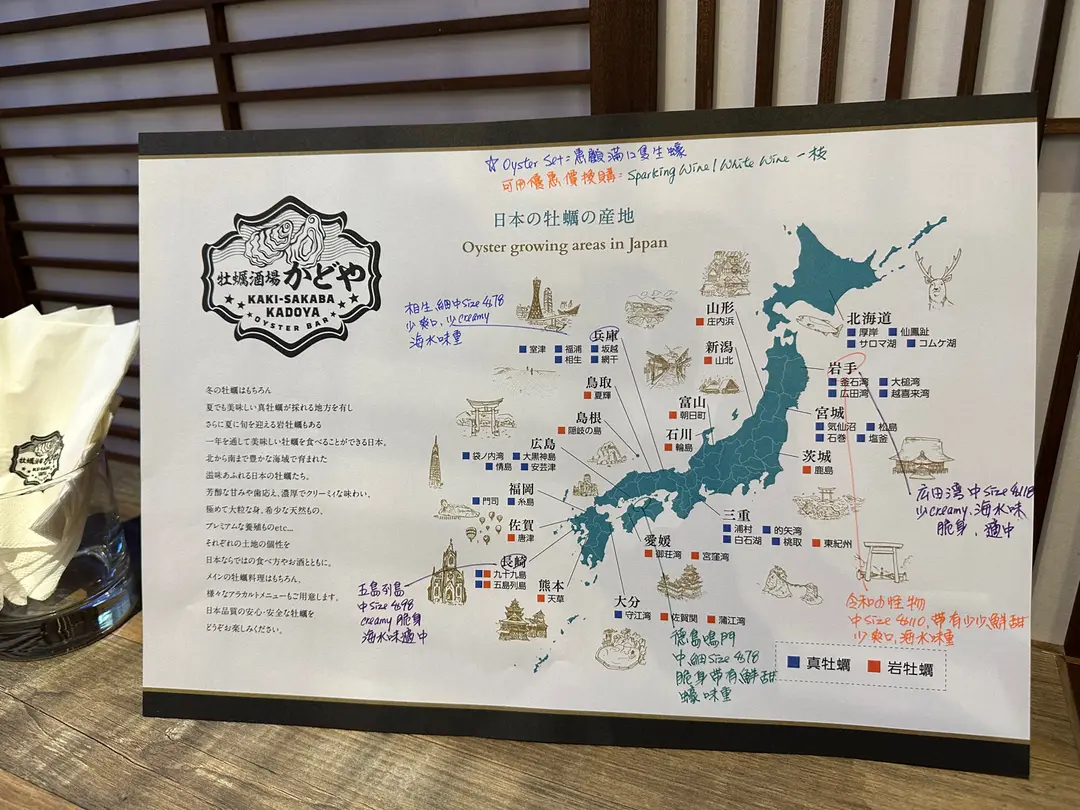 ☆ Oyster Set = 惠顧滿12隻生蠔
可用優惠價換購 = Sparking Wine / White Wine 一枝
日本の牡蠣の産地
Oyster growing areas in Japan
牡蠣酒場 かどや
KAKI-SAKABA
KADOYA
OYSTER BAR
冬の牡蠣はもちろん
夏でも美味しい真牡蠣が採れる地方を有し
さらに夏に旬を迎える岩牡蠣もある
一年を通して美味しい牡蠣を食べることができる日本。
北から南まで豊かな海域で育まれた
滋味あふれる日本の牡蠣たち。
芳醇な甘みや歯応え、濃厚でクリーミィな味わい。
極めて大粒な身、希少な天然もの、
プレミアムな養殖ものetc...
それぞれの土地の個性を
日本ならではの食べ方やお酒とともに。
メインの牡蠣料理はもちろん、
様々なアラカルトメニューもご用意します。
日本品質の安心・安全な牡蠣を
どうぞお楽しみください。
相生, 細中size $78
少爽口, 少creamy
海水味重
兵庫
室津 福浦 坂越
相生 網干
鳥取
夏輝
島根
隠岐の島
広島
袋ノ内湾 大黒神島
情島 安芸津
福岡
門司 糸島
佐賀
唐津
長崎
九十九島
五島列島
五島列島
中size $98
creamy 脆身
海水味適中
熊本
天草
山形
庄内浜
新潟
山北
富山
朝日町
石川
輪島
北海道
厚岸 仙鳳趾
サロマ湖 コムケ湖
岩手
釜石湾 大槌湾
広田湾 越喜来湾
宮城
気仙沼 松島
石巻 塩釜
茨城
鹿島
三重
浦村 的矢湾
白石湖 桃取 東紀州
愛媛
御荘湾 宮窪湾
大分
守江湾 佐賀関 蒲江湾
徳島鳴門
中細size $78
脆身帶有鮮甜
蠔味重
広田湾 中size $118
少creamy, 海水味
脆身, 適中
令和の怪物
中size $110, 帶有少少鮮甜
少爽口, 海水味重
真牡蠣 岩牡蠣